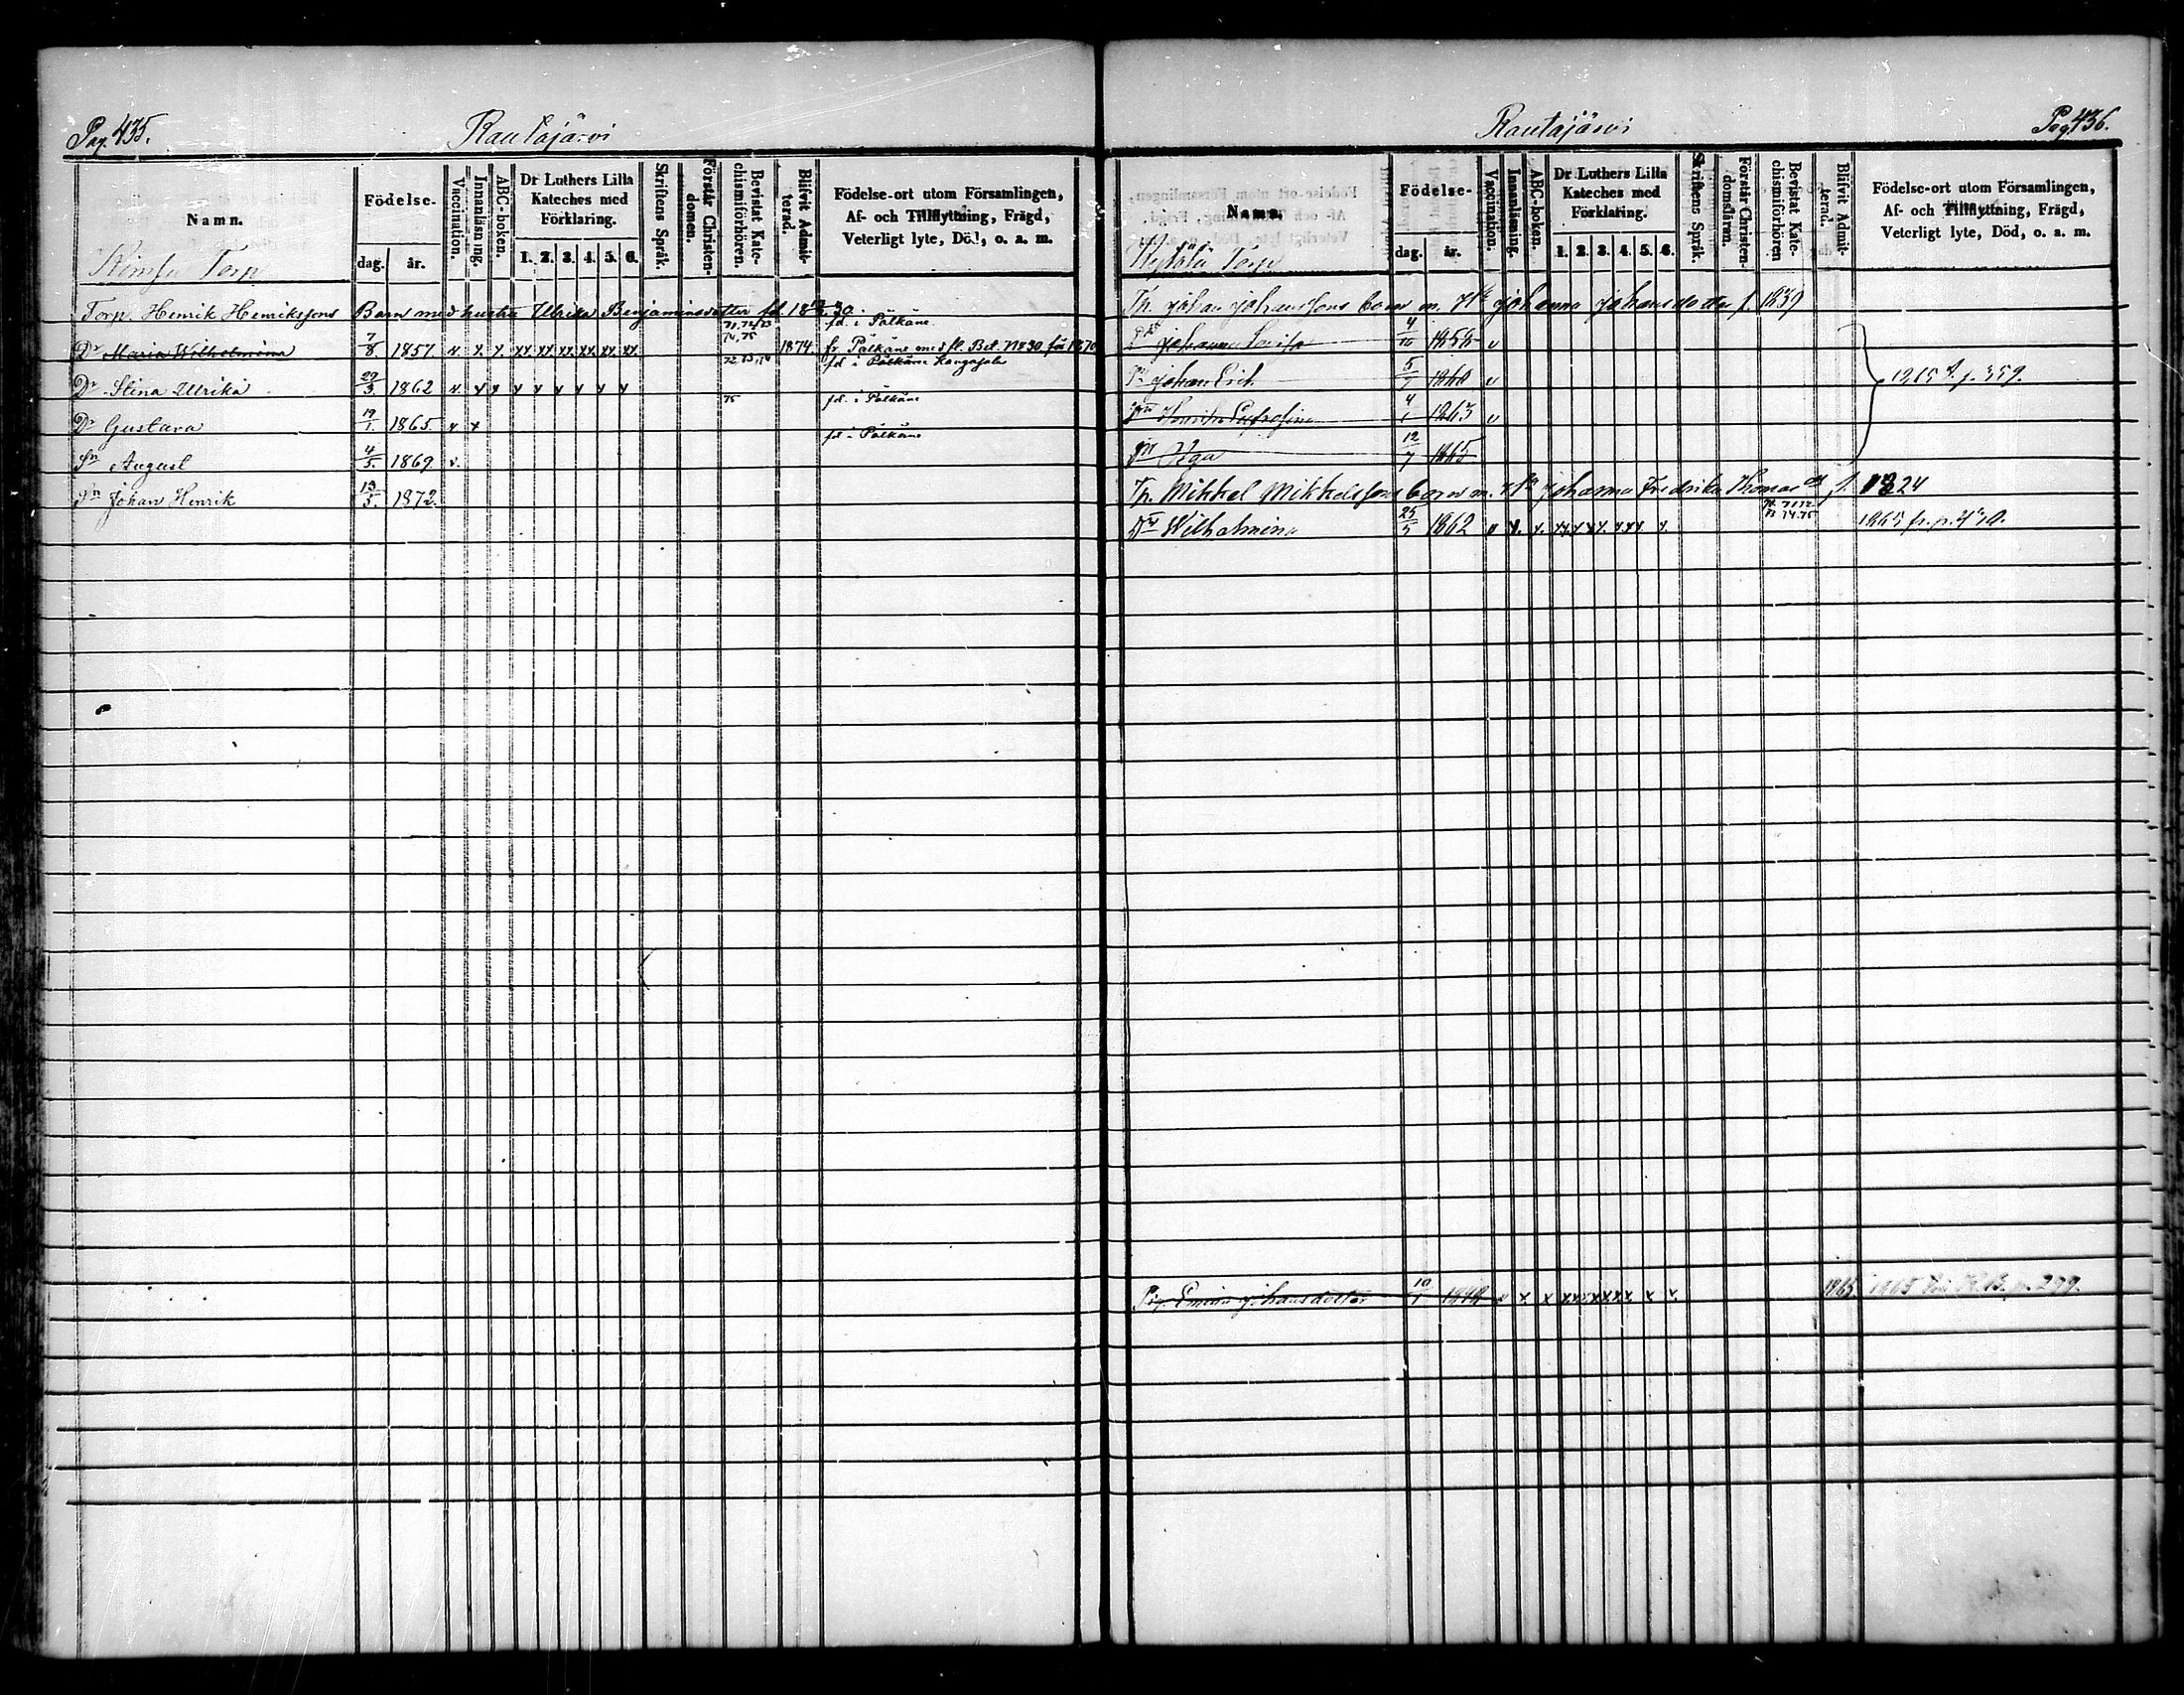 Pag. 435.
Rautajärvi
Namn.
Födelse-
dag. år.
Vaccination.
Innanläsning.
ABC-boken.
Dr Luthers Lilla Kateches med Förklaring.
1. 2. 3. 4. 5. 6.
Skriftens Språk.
Förstår Christendomen.
Bevistat Katechismiförhören.
Blifvit Admitterad.
Födelse-ort utom Församlingen,
Af- och Tillflyttning, Frägd,
Veterligt lyte, Död, o. a. m.
Torp
Torp. Henrik Henrikssons Barn med hustru Ulrika Benjaminsdotter fd. 18 30.
71, 74, 75 fd. i Pälkäne
Dr Maria Wilhelmina 7/8 1857. v. x. x. xx xx xx xx xx xx 1874. fr. Pälkäne med fl. Bet. No 30 för 1870
72 73, 74 fd. i Pälkäne Kangasala
Dr Stina Ulrika 29/3. 1862 v. x x x x x x x x
75 fd. i Pälkäne
Dr Gustava 19/1. 1865. v x
fd. i Pälkäne
Sn August 4/5. 1869. v.
Sn Johan Henrik 13/5. 1872.
Pag. 436.
Rautajärvi
Namn.
Födelse-
dag. år.
Vaccination.
Innanläsning.
ABC-boken.
Dr Luthers Lilla Kateches med Förklaring.
1. 2. 3. 4. 5. 6.
Skriftens Språk.
Förstår Christendomsläran.
Bevistat Katechismiförhören
Blifvit Admitterad.
Födelse-ort utom Församlingen,
Af- och Tillflyttning, Frägd,
Veterligt lyte, Död, o. a. m.
Torp
Tp. Johan Johanssons barn m. Johanna Johansdotter f. 1839
Johanna Lovisa 4/10 1858 v
Johan Erik 5/ 1860 v p. 359.
4/1 1863 v
Olga 12/7 1865
Tp. Mikkel Mikkelssons barn m. Johanna Fredrika Thomasdr f. 1824
Dr Wilhelmina 25/5 1862 v x. x. xx x xx. xxx x. 1865 fr. p.
Pig. Emma Johansdotter 10/1 1848 v x. x xx xxxx x x. 1865 1865 K. B. p. 279.